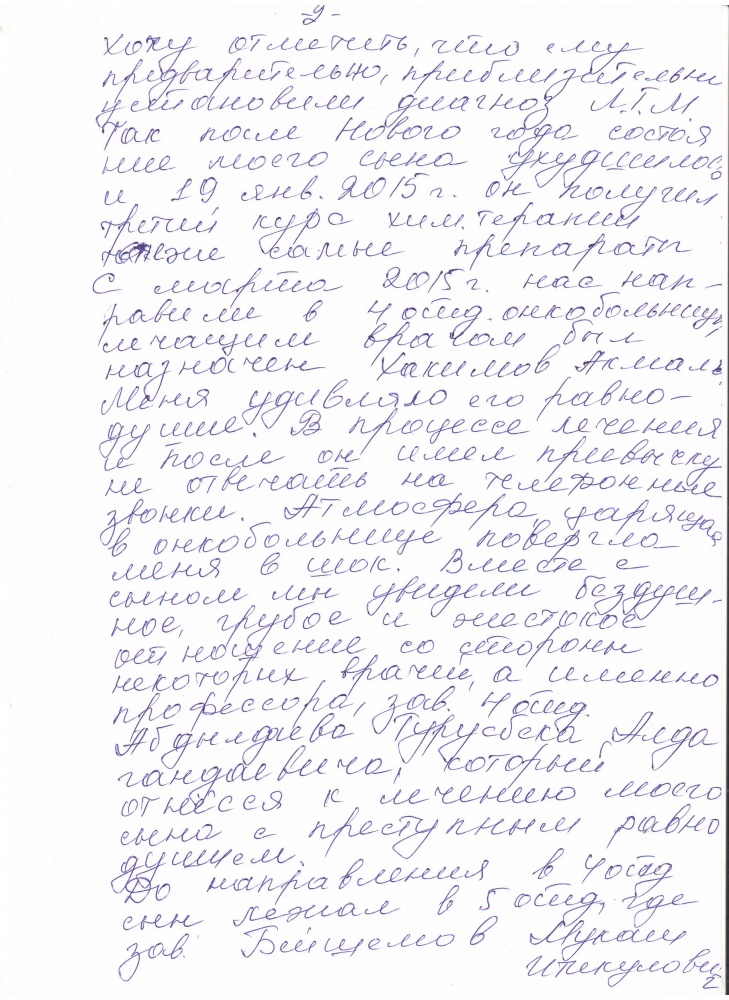 -2-
Хочу отметить, что ему
предварительно, приблизительно
установили диагноз Л.Г.М.
Так после Нового года состоя
ние моего сына ухудшилось
и 19 янв. 2015 г. он получил
третий курс хим.терапии
те же самые препараты
С марта 2015 г. нас нап-
равили в 4 отд. онкобольницы,
лечащим врачом был
назначен Хакимов Акмаль
Меня удивляло его равно-
душие. В процессе лечения
и после он имел привычку
не отвечать на телефонные
звонки. Атмосфера царящая
в онкобольнице повергла
меня в шок. Вместе с
сыном мы увидели бездуш-
ное, грубое и жестокое
отношение со стороны
некоторых врачей, а именно
профессора, зав. 4 отд.
Абдылдаева Турусбека Алда
гандаевича, который
отнёсся к лечению моего
сына с преступным равно
душием.
До направления в 4 отд
сын лежал в 5 отд, где
зав. Бейшембов Мукаш